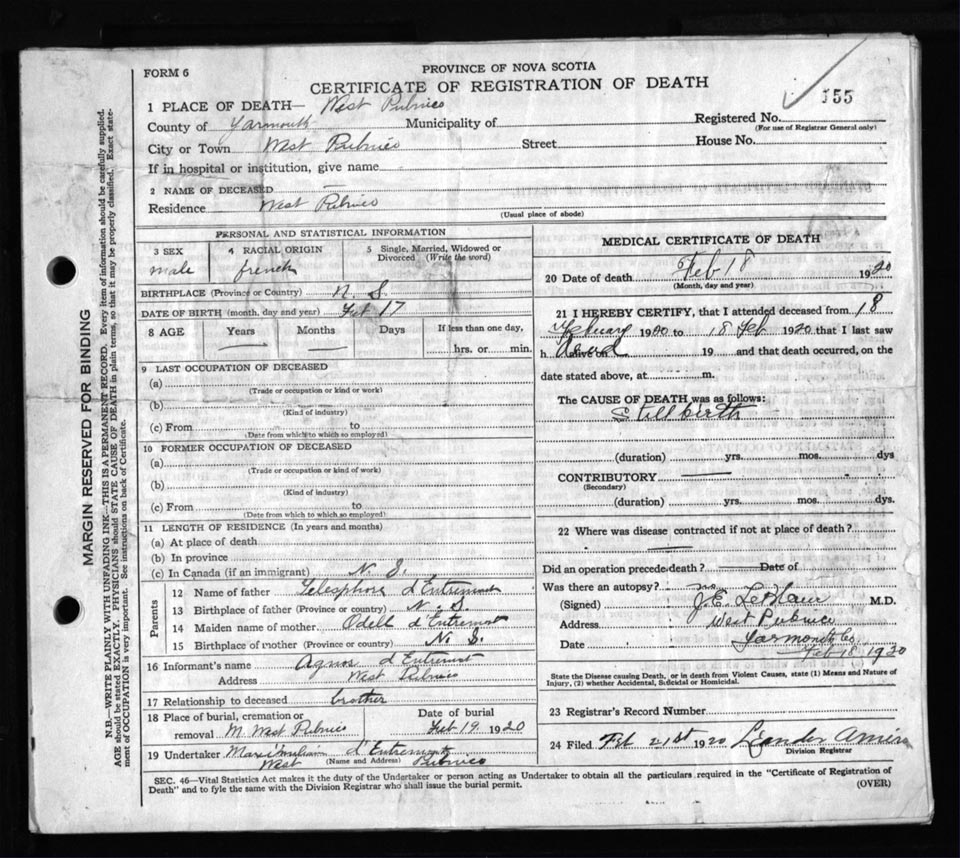 FORM 6
PROVINCE OF NOVA SCOTIA
CERTIFICATE OF REGISTRATION OF DEATH
155
1 PLACE OF DEATH— West Pubnico
County of Yarmouth Municipality of
Registered No.
(For use of Registrar General only)
City or Town West Pubnico Street House No.
If in hospital or institution, give name
2 NAME OF DECEASED —
Residence West Pubnico
(Usual place of abode)
PERSONAL AND STATISTICAL INFORMATION
3 SEX
male
4 RACIAL ORIGIN
french
5 Single, Married, Widowed or Divorced (Write the word)
BIRTHPLACE (Province or Country) N. S.
DATE OF BIRTH (month, day and year) Feb 17
8 AGE Years Months Days If less than one day,
— — — hrs. or min.
9 LAST OCCUPATION OF DECEASED
(a)
(Trade or occupation or kind or work)
(b)
(Kind of industry)
(c) From to
(Date from which to which so employed)
10 FORMER OCCUPATION OF DECEASED
(a)
(Trade or occupation or kind of work)
(b)
(Kind of industry)
(c) From to
(Date from which to which so employed)
11 LENGTH OF RESIDENCE (In years and months)
(a) At place of death
(b) In province
(c) In Canada (if an immigrant) N. S.
Parents
12 Name of father Telesphore d'Entremont
13 Birthplace of father (Province or country) N. S.
14 Maiden name of mother. Odell d'Entremont
15 Birthplace of mother (Province or country) N. S.
16 Informant's name Agnos d'Entremont
Address West Pubnico
17 Relationship to deceased brother
18 Place of burial, cremation or removal M. West Pubnico
Date of burial
Feb 19 1920
19 Undertaker Maximilien d'Entremont
(Name and Address)
West Pubnico
MEDICAL CERTIFICATE OF DEATH
20 Date of death Feb 18 1920
(Month, day and year)
21 I HEREBY CERTIFY, that I attended deceased from 18
February 1920 to 18 Feb 1920 that I last saw
h alive on dead 19 and that death occurred, on the
date stated above, at m.
The CAUSE OF DEATH was as follows:
Stillbirth
(duration) yrs. mos. dys
CONTRIBUTORY —
(Secondary)
(duration) yrs. mos. dys.
22 Where was disease contracted if not at place of death?
—
Did an operation precede death? — Date of
Was there an autopsy? no
(Signed) J. E. LeBlanc M.D.
Address West Pubnico
Yarmouth Co
Date Feb 18 1920
State the Disease causing Death, or in death from Violent Causes, state (1) Means and Nature of
Injury, (2) whether Accidental, Suicidal or Homicidal.
23 Registrar's Record Number
24 Filed Feb 21st 1920 Leander Amiro
Division Registrar
SEC. 46—Vital Statistics Act makes it the duty of the Undertaker or person acting as Undertaker to obtain all the particulars required in the "Certificate of Registration of
Death" and to fyle the same with the Division Registrar who shall issue the burial permit.
(OVER)
MARGIN RESERVED FOR BINDING
N.B.—WRITE PLAINLY WITH UNFADING INK—THIS IS A PERMANENT RECORD. Every item of information should be carefully supplied.
AGE should be stated EXACTLY. PHYSICIANS should STATE CAUSE OF DEATH in plain terms, so that it may be properly classified. Exact state-
ment of OCCUPATION is very important. See instructions on back of Certificate.